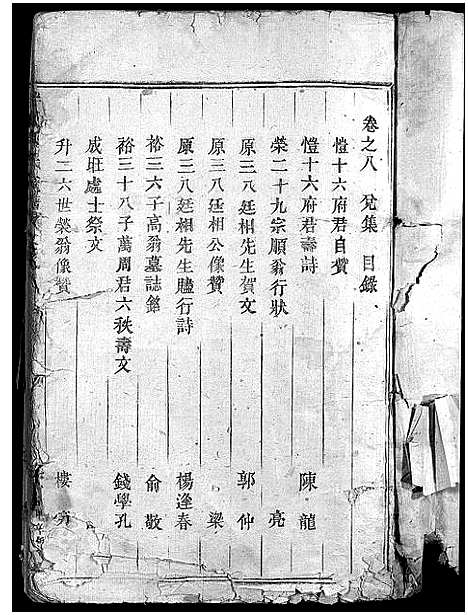 卷之八 兌集 目錄
愷十六府君自贊
愷十六府君壽詩 陳龍
榮二十九宗順翁行狀 亮
原三八廷相先生賀文 郭仲
原三八廷相公像贊 梁
原三八廷相先生贐行詩 楊逢春
裕三六子高翁墓誌銘 俞敬
裕三十八子萬周君六秩壽文 錢學孔
成班處士祭文
升二六世榮翁像贊 樓